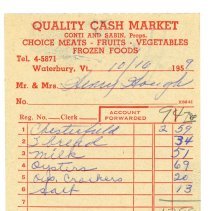 QUALITY CASH MARKET
CONTI AND SASIN, Props.
CHOICE MEATS - FRUITS - VEGETABLES
FROZEN FOODS
Tel. 4-5871
Waterbury, Vt. 10/10 1959
Mr. & Mrs. Henry Hough
No.
Reg. No. Clerk ACCOUNT FORWARDED 94
1 Chesterfield 2 59
2 Bread 34
3 Milk 51
4 Oysters 69
5 Oys. Crackers 20
6 Salt 13
7